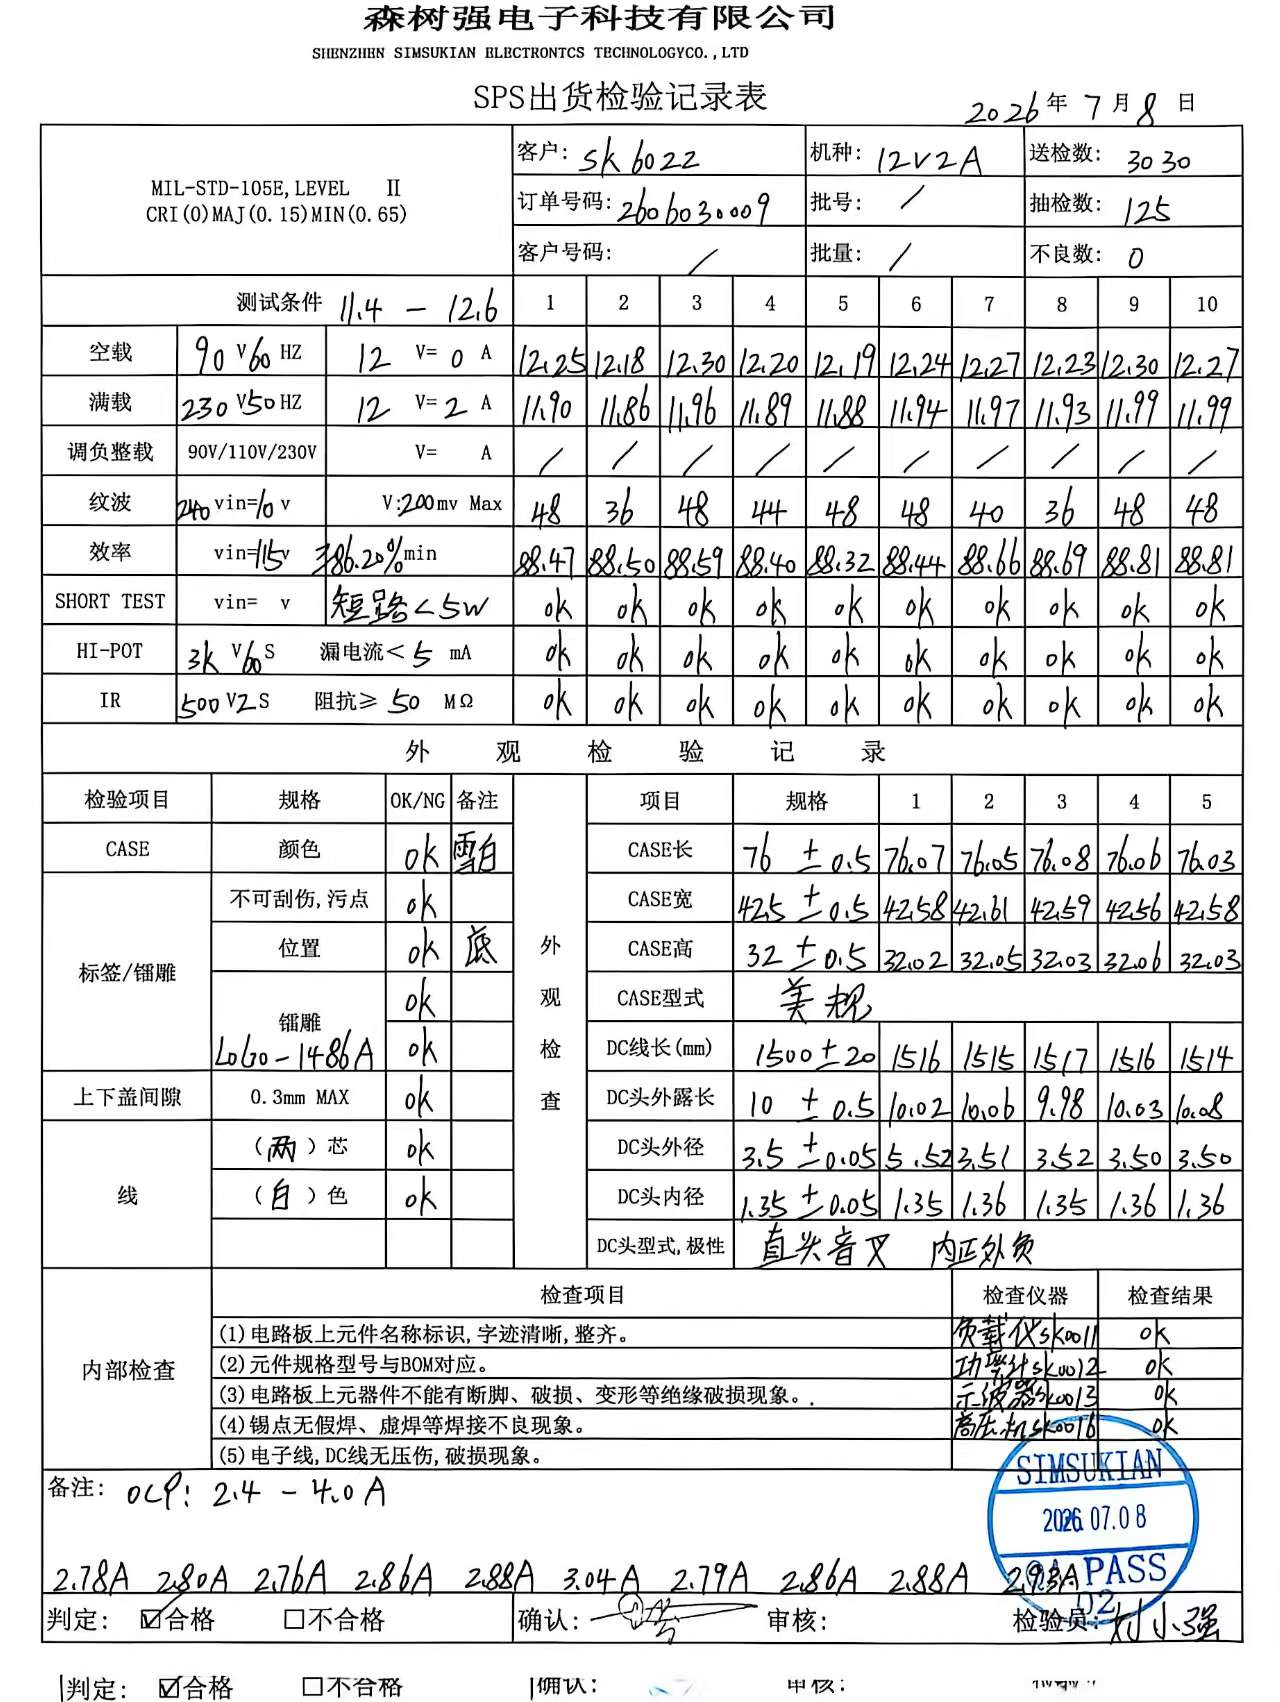 森树强电子科技有限公司
SHENZHEN SIMSUKIAN ELECTRONTCS TECHNOLOGYCO.,LTD
SPS出货检验记录表
2026年7月8日
MIL-STD-105E,LEVEL Ⅱ
CRI(0)MAJ(0.15)MIN(0.65)
客户: SK6022 机种: 12V2A 送检数: 3030
订单号码: 2606030009 批号: / 抽检数: 125
客户号码: / 批量: / 不良数: 0
测试条件 11.4 - 12.6 1 2 3 4 5 6 7 8 9 10
空载 90 V 60 HZ 12 V= 0 A 12.25 12.18 12.30 12.20 12.19 12.24 12.27 12.23 12.30 12.27
满载 230 V 50 HZ 12 V= 2 A 11.90 11.86 11.96 11.89 11.88 11.94 11.97 11.93 11.99 11.99
调负整载 90V/110V/230V V= A / / / / / / / / / /
纹波 240 vin=10 v V:200mv Max 48 36 48 44 48 48 40 36 48 48
效率 vin=115v ≥86.20%min 88.47 88.50 88.59 88.40 88.32 88.44 88.66 88.69 88.81 88.81
SHORT TEST vin= v 短路<5W OK OK OK OK OK OK OK OK OK OK
HI-POT 3K V 60 S 漏电流< 5 mA OK OK OK OK OK OK OK OK OK OK
IR 500 V 2 S 阻抗≥ 50 MΩ OK OK OK OK OK OK OK OK OK OK
外观检验记录
检验项目 规格 OK/NG 备注 项目 规格 1 2 3 4 5
CASE 颜色 OK 雪白 CASE长 76 ±0.5 76.07 76.05 76.08 76.06 76.03
不可刮伤,污点 OK CASE宽 42.5 ±0.5 42.58 42.61 42.59 42.56 42.58
标签/镭雕 位置 OK 底 外观检查 CASE高 32 ±0.5 32.02 32.05 32.03 32.06 32.03
镭雕 OK CASE型式 美规
LOGO-1486A OK DC线长(mm) 1500±20 1516 1515 1517 1516 1514
上下盖间隙 0.3mm MAX OK DC头外露长 10 ±0.5 10.02 10.06 9.98 10.03 10.08
线 (两)芯 OK DC头外径 3.5 ±0.05 5.52 3.51 3.52 3.50 3.50
(白)色 OK DC头内径 1.35 ±0.05 1.35 1.36 1.35 1.36 1.36
DC头型式,极性 直头音叉 内正外负
内部检查 检查项目 检查仪器 检查结果
(1)电路板上元件名称标识,字迹清晰,整齐。 负载仪SK0011 OK
(2)元件规格型号与BOM对应。 功率计SK0012 OK
(3)电路板上元器件不能有断脚、破损、变形等绝缘破损现象。. 示波器SK0013 OK
(4)锡点无假焊、虚焊等焊接不良现象。 高压机SK0016 OK
(5)电子线,DC线无压伤,破损现象。
SIMSUKIAN
2026.07.08
PASS
02
备注: OCP: 2.4 - 4.0A
2.78A 2.80A 2.76A 2.86A 2.88A 3.04A 2.79A 2.86A 2.88A 2.93A
判定: ☑合格 □不合格 确认: 审核: 检验员: 刘小强
判定: ☑合格 □不合格 确认: 审核: